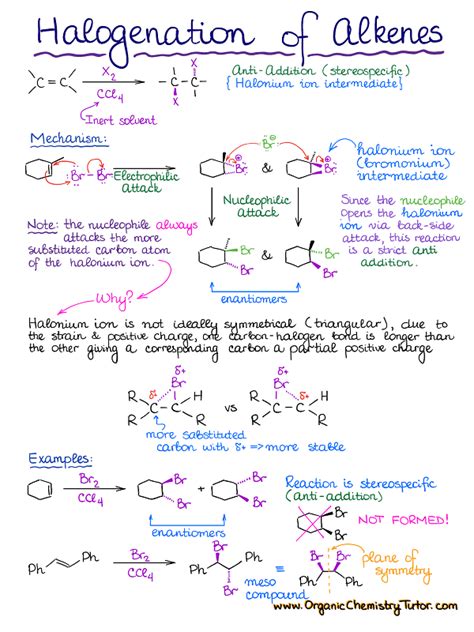 Halogenation of Alkenes
C=C
X₂
CCl₄
X
C-C
X
Anti-Addition (stereospecific)
{Halonium ion intermediate}
Inert solvent
Mechanism:
Br-Br
Electrophilic
Attack
Br
⊕
Br
&
Br
⊕
halonium ion
(bromonium)
intermediate
Nucleophilic
Attack
Since the nucleophile
opens the halonium
ion via back-side
attack, this reaction
is a strict anti
addition.
Note: the nucleophile always
attacks the more
substituted carbon atom
of the halonium ion.
Br
Br
&
Br
Br
enantiomers
Why?
Halonium ion is not ideally symmetrical (triangular), due to
the strain & positive charge, one carbon-halogen bond is longer than
the other giving a corresponding carbon a partial positive charge
δ+
Br
R δ+ H
C-C
R R
vs
δ+
Br
R δ+ H
C-C
R R
more substituted
carbon with δ+ => more stable
Examples:
Br₂
CCl₄
Br
Br
+
Br
Br
enantiomers
Reaction is stereospecific
(anti-addition)
Br
Br
NOT FORMED!
Ph Ph
Br₂
CCl₄
Br
Ph Ph
Br
meso
compound
=
Br Br
Ph Ph
plane of
symmetry
www.OrganicChemistryTutor.com